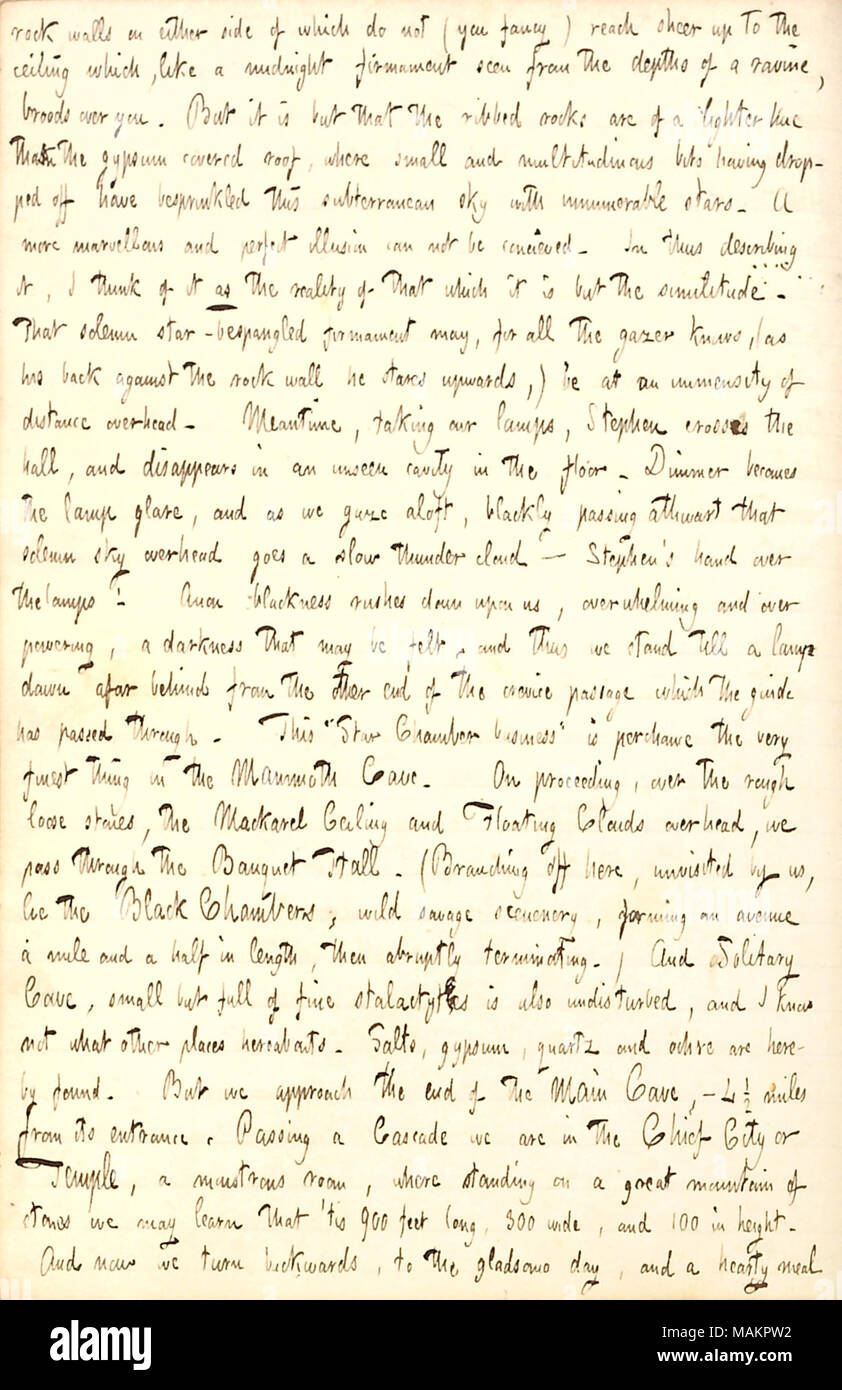 rock walls on either side of which do not (you fancy) reach sheer up to the
ceiling which, like a midnight firmament seen from the depths of a ravine,
broods over you. But it is but that the ribbed rocks are of a lighter hue
than the gypsum covered roof, where small and multitudinous bits having drop-
ped off have besprinkled this subterranean sky with innumerable stars. A
more marvellous and perfect illusion can not be concieved. In thus describing
it, I think of it as the reality of that which it is but the similitude.
That solemn star-bespangled firmament may, for all the gazer knows, (as
his back against the rock wall he stares upwards,) be at an immensity of
distance overhead. Meantime, taking our lamps, Stephen crosses the
hall, and disappears in an unseen cavity in the floor. Dimmer becomes
the lamp glare, and as we gaze aloft, blackly passing athwart that
solemn sky overhead goes a slow thunder cloud — Stephen's hand over
the lamps! Anon blackness rushes down upon us, overwhelming and over
powering, a darkness that may be felt, and thus we stand till a lamp
dawn afar behind from the other end of the crevice passage which the guide
has passed through. This "Star Chamber business" is perchance the very
finest thing in the Mammoth Cave. On proceeding, over the rough
loose stones, the Mackarel Ceiling and Floating Clouds overhead, we
pass through the Banquet Hall. (Branching off here, unvisited by us,
lie the Black Chambers, wild savage scenenery, forming an avenue
a mile and a half in length, then abruptly terminating.) And Solitary
Cave, small but full of fine stalactytes is also undisturbed, and I know
not what other places hereabouts. Salts, gypsum, quartz and ochre are here-
by found. But we approach the end of the Main Cave, - 4 ½ miles
from its entrance. Passing a Cascade we are in the Chief City or
Temple, a monstrous room, where standing on a great mountain of
stones we may learn that 'tis 900 feet long, 300 wide, and 100 in height.
And now we turn backwards, to the gladsome day, and a hearty meal
alamy
Image ID: MAKPW2
www.alamy.com